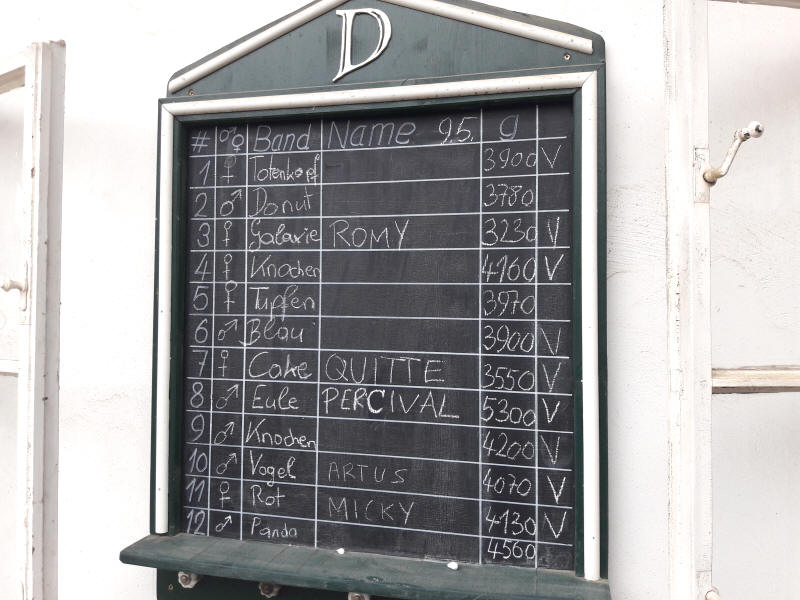 D
# ♂♀ Band Name 9.5. g
1 ♀ Totenkopf 3900 V
2 ♂ Donut 3780
3 ♀ Galaxie ROMY 3230 V
4 ♀ Knochen 4160 V
5 ♀ Tupfen 3970
6 ♂ Blau 3900 V
7 ♀ Cake QUITTE 3550 V
8 ♂ Eule PERCIVAL 5300 V
9 ♂ Knochen 4200 V
10 ♂ Vogel ARTUS 4070 V
11 ♀ Rot MICKY 4130 V
12 ♂ Panda 4560